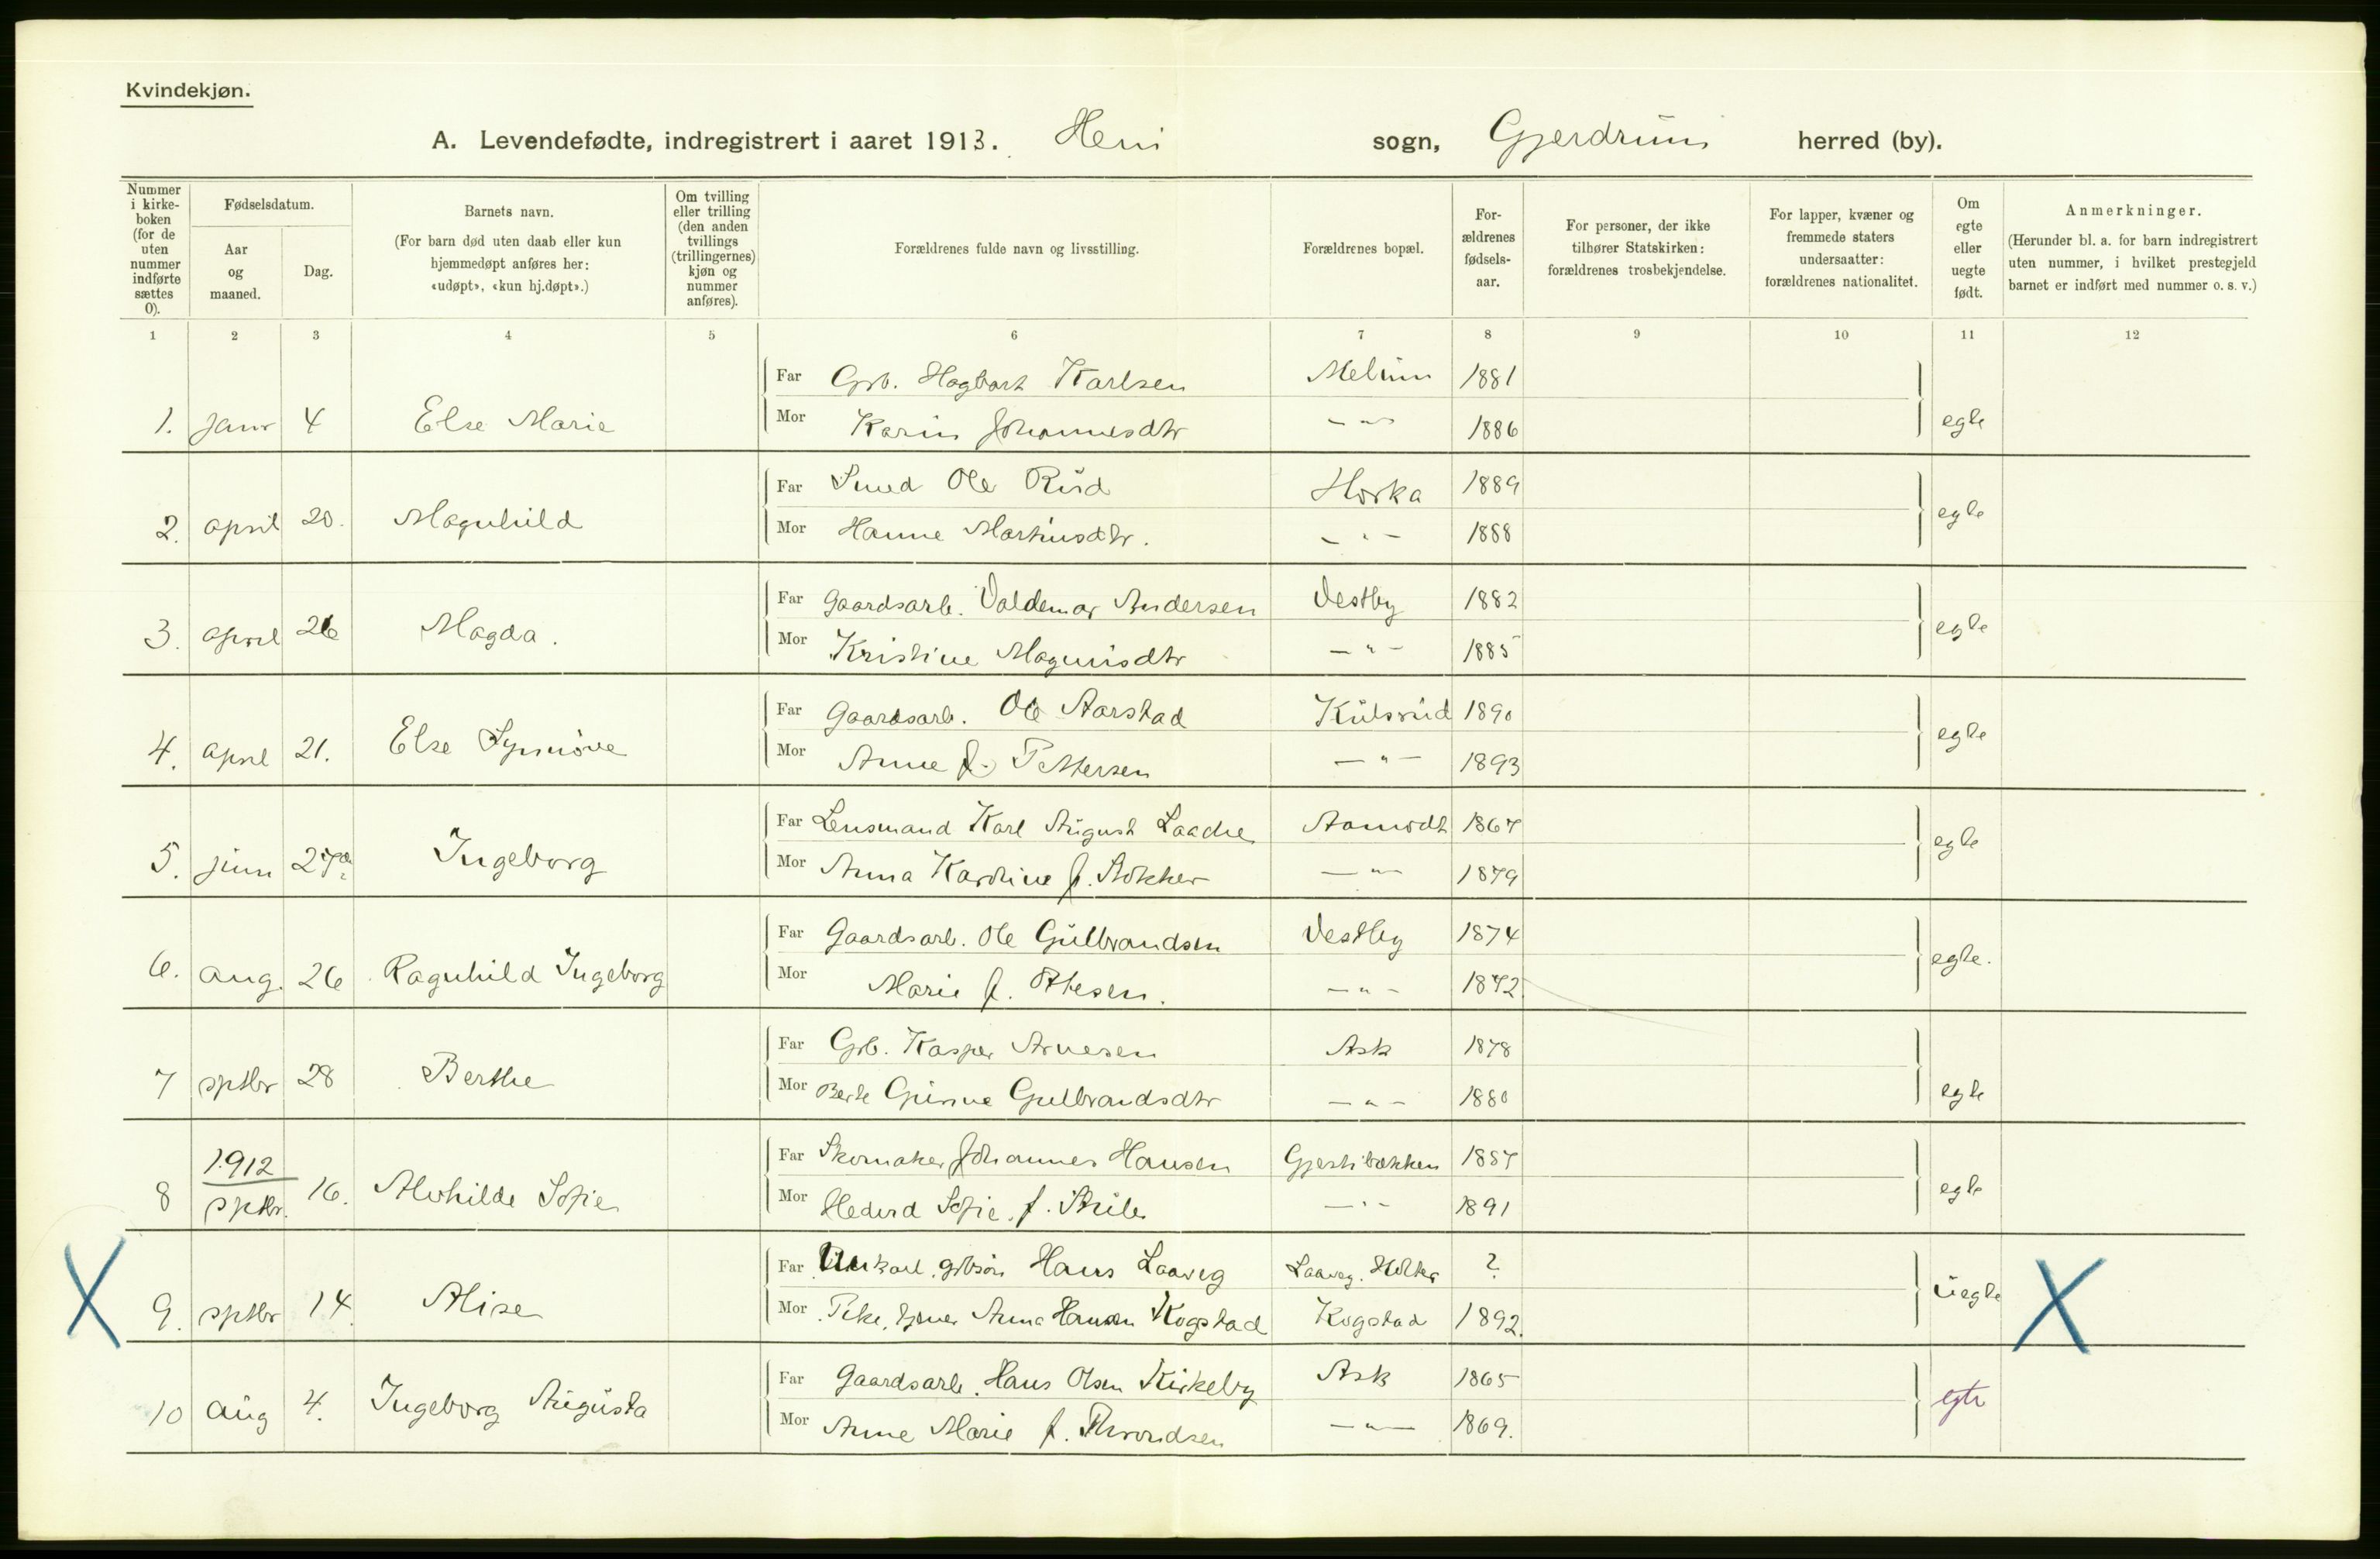 Kvindekjøn.
A. Levendefødte, indregistrert i aaret 1913. Heni sogn, Gjerdrum herred (by).
Nummer i kirkeboken (for de uten nummer indførte sættes 0).
Fødselsdatum.
Aar og maaned.
Dag.
Barnets navn.
(For barn død uten daab eller kun hjemmedøpt anføres her: «udøpt», «kun hj.døpt».)
Om tvilling eller trilling (den anden tvillings (trillingernes) kjøn og nummer anføres).
Forældrenes fulde navn og livsstilling.
Forældrenes bopæl.
For-ældrenes fødsels-aar.
For personer, der ikke tilhører Statskirken: forældrenes trosbekjendelse.
For lapper, kvæner og fremmede staters undersaatter: forældrenes nationalitet.
Om egte eller uegte født.
Anmerkninger.
(Herunder bl. a. for barn indregistrert uten nummer, i hvilket prestegjeld barnet er indført med nummer o. s. v.)
1 2 3 4 5 6 7 8 9 10 11 12
Far Grb. Hagbart Karlsen Melum 1881
1. janr 4 Else Marie Mor Karin Johannesdtr —„— 1886 egte
Far Smed Ole Ruud Horka 1889
2. april 20. Magnhild Mor Hanne Martinusdtr. —„— 1888 egte
Far Gaardsarb. Valdemar Andersen Vestby 1882
3. april 26 Magda. Mor Kristine Magnusdtr —„— 1885 egte
Far Gaardsarb. Ole Aarstad Kulsrud 1890
4. april 21. Else Synnöve Mor Anne f. Pettersen —„— 1893 egte
Far Lensmand Karl August Laache Aamodt 1867
5. juni 27de Ingeborg Mor Anna Karoline f. Stokker —„— 1879 egte
Far Gaardsarb. Ole Gulbrandsen Vestby 1874
6. aug. 26 Ragnhild Ingeborg Mor Marie f. —„— 1872 egte.
Far Grb. Kasper Arnesen Ask 1878
7 sptbr 28 Berthe Mor Berte Gurine Gulbrandsdtr —„— 1880 egte
1912
Far Skomaker Johannes Hansen Gjestibækken 1887
8 sptbr. 16. Alvhilde Sofie Mor Sofie f. —„— 1891 egte
Far Unkarl, grbsøn Hans Laaveg Laaveg, Holter ?
9. sptbr 14. Alise Mor Pike, tjener Anna Hansen Kogstad Kogstad 1892. uegte
Far Gaardsarb. Hans Olsen Kirkeby Ask 1865
10 aug 4. Ingeborg Augusta Mor Anne Marie f. Thorvondsen —„— 1869. egte